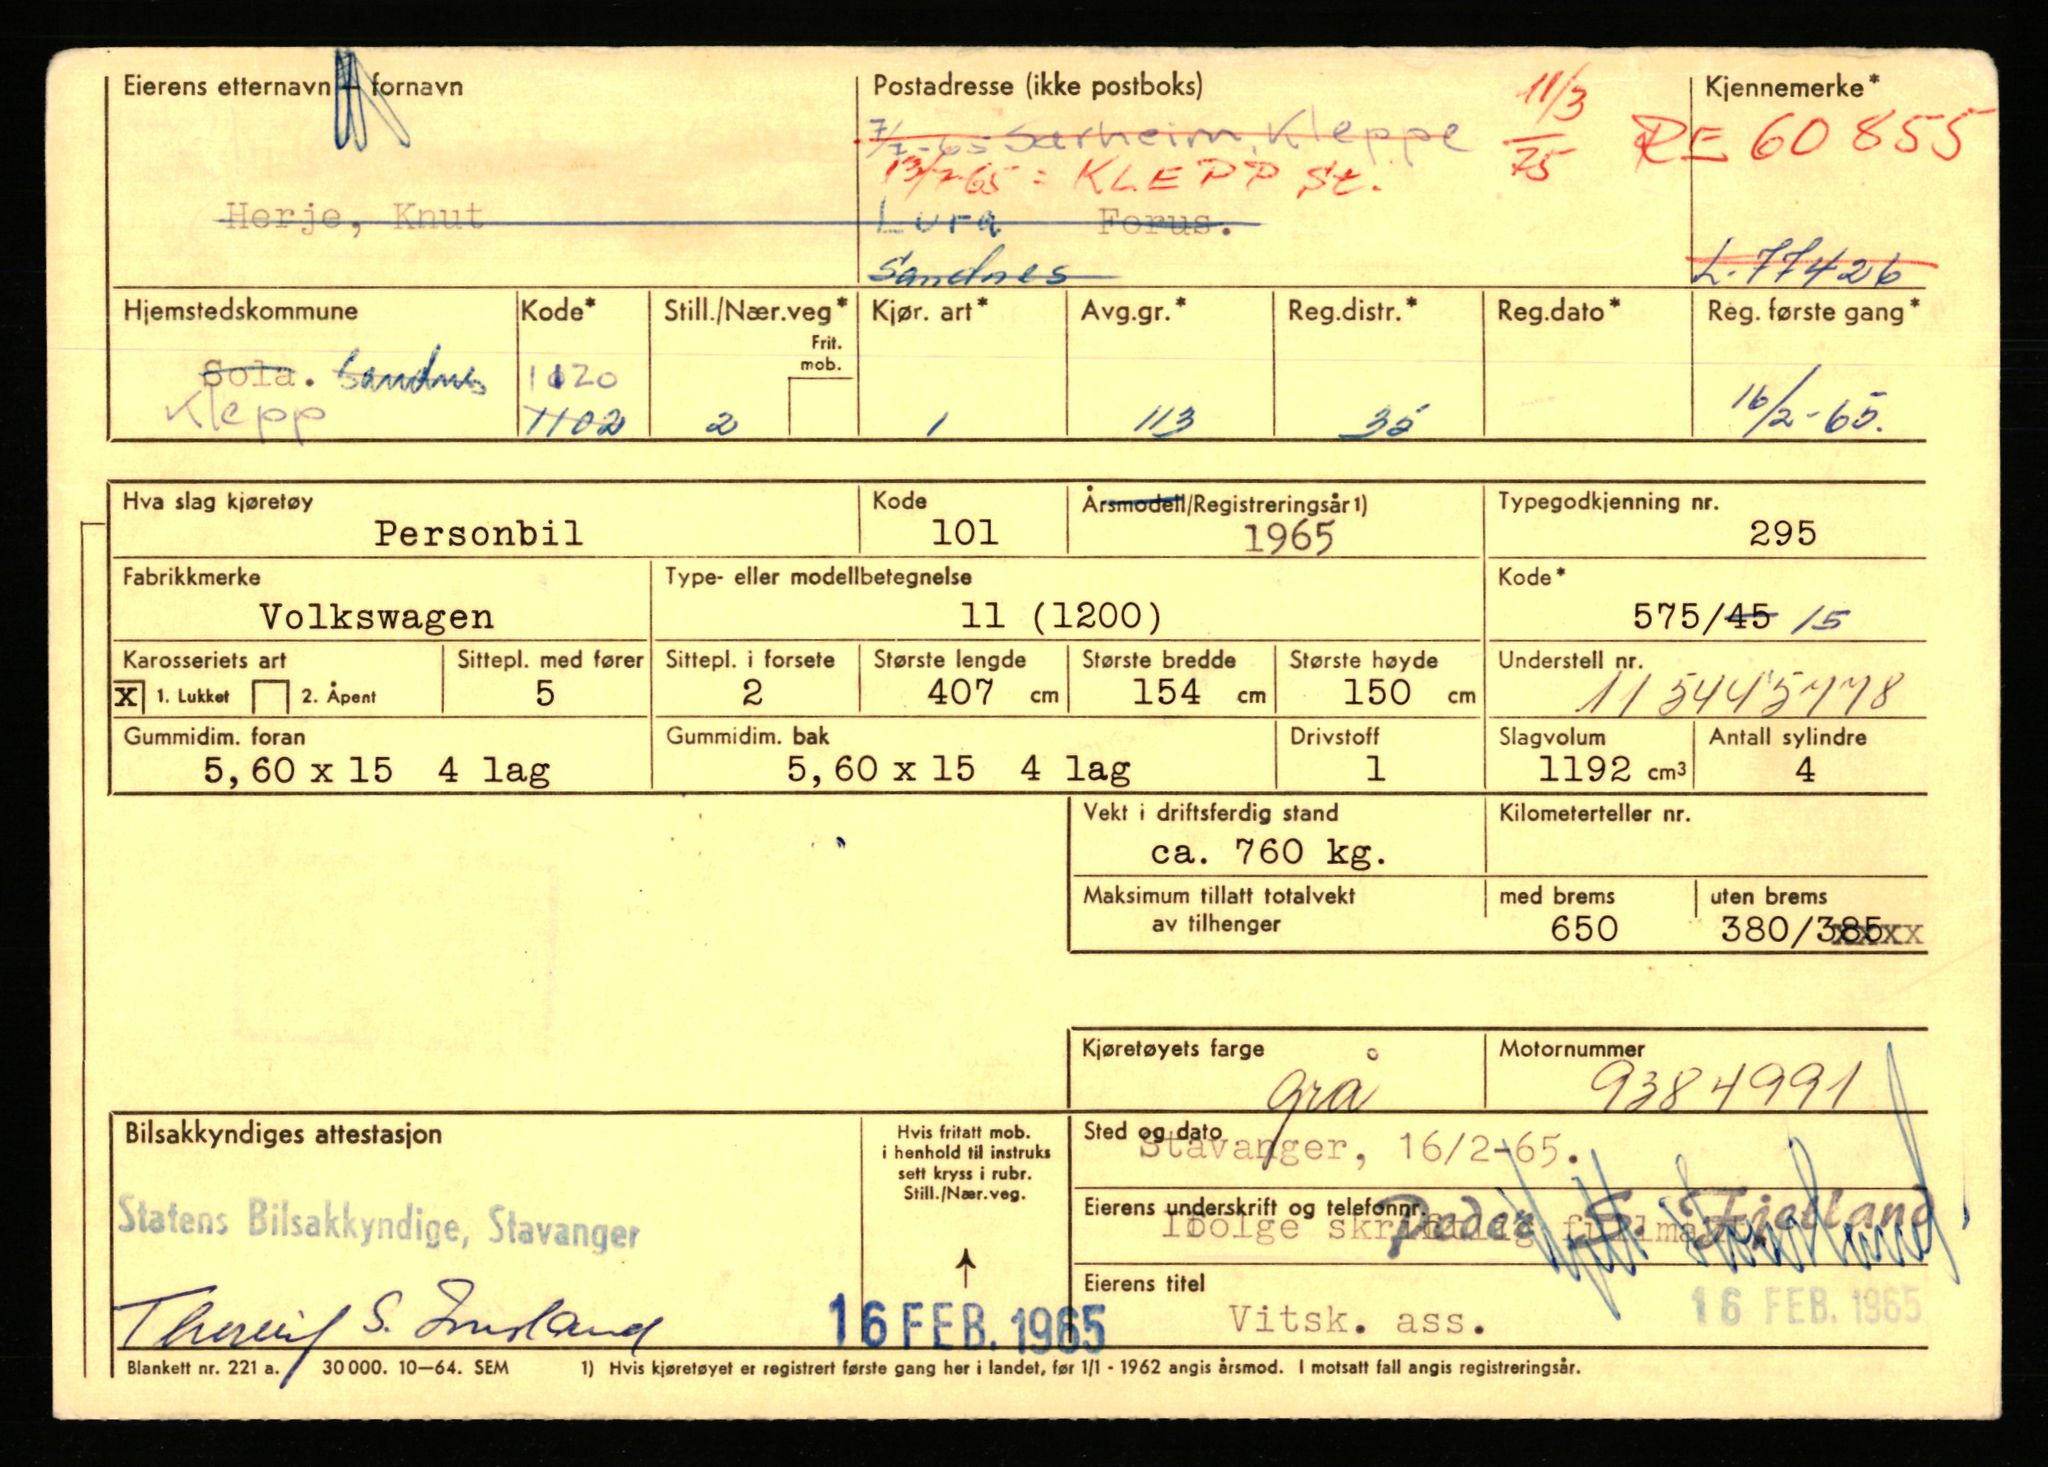 Eierens etternavn – fornavn
Postadresse (ikke postboks)
Kjennemerke*
11/3 75
RE 60855
7/7-65 = Særheim, Kleppe
13/7-65 = KLEPP St.
Herje, Knut
Lura Forus.
Sandnes
L-77426
Hjemstedskommune Kode* Still./Nær.veg* Frit. mob. Kjør. art* Avg.gr.* Reg.distr.* Reg.dato* Reg. første gang*
Sola. Sandnes 1120
Klepp 1102 2 1 113 35 16/2-65.
Hva slag kjøretøy Kode Årsmodell/Registreringsår1) Typegodkjenning nr.
Personbil 101 1965 295
Fabrikkmerke Type- eller modellbetegnelse Kode*
Volkswagen 11 (1200) 575/45 15
Karosseriets art Sittepl. med fører Sittepl. i forsete Største lengde Største bredde Største høyde Understell nr.
X 1. Lukket 2. Åpent 5 2 407 cm 154 cm 150 cm 115445778
Gummidim. foran Gummidim. bak Drivstoff Slagvolum Antall sylindre
5,60 x 15 4 lag 5,60 x 15 4 lag 1 1192 cm3 4
Vekt i driftsferdig stand Kilometerteller nr.
ca. 760 kg.
Maksimum tillatt totalvekt av tilhenger med brems uten brems
650 380/385
Kjøretøyets farge Motornummer
grå 9384991
Bilsakkyndiges attestasjon
Hvis fritatt mob.
i henhold til instruks
sett kryss i rubr.
Still./Nær.veg.
Sted og dato
Stavanger, 16/2-65.
Statens Bilsakkyndige, Stavanger
Eierens underskrift og telefonnr.
Peder S. Fjelland
Eierens titel
Vitsk. ass.
16 FEB. 1965
16 FEB. 1965
Blankett nr. 221 a. 30 000. 10–64. SEM 1) Hvis kjøretøyet er registrert første gang her i landet, før 1/1 - 1962 angis årsmod. I motsatt fall angis registreringsår.